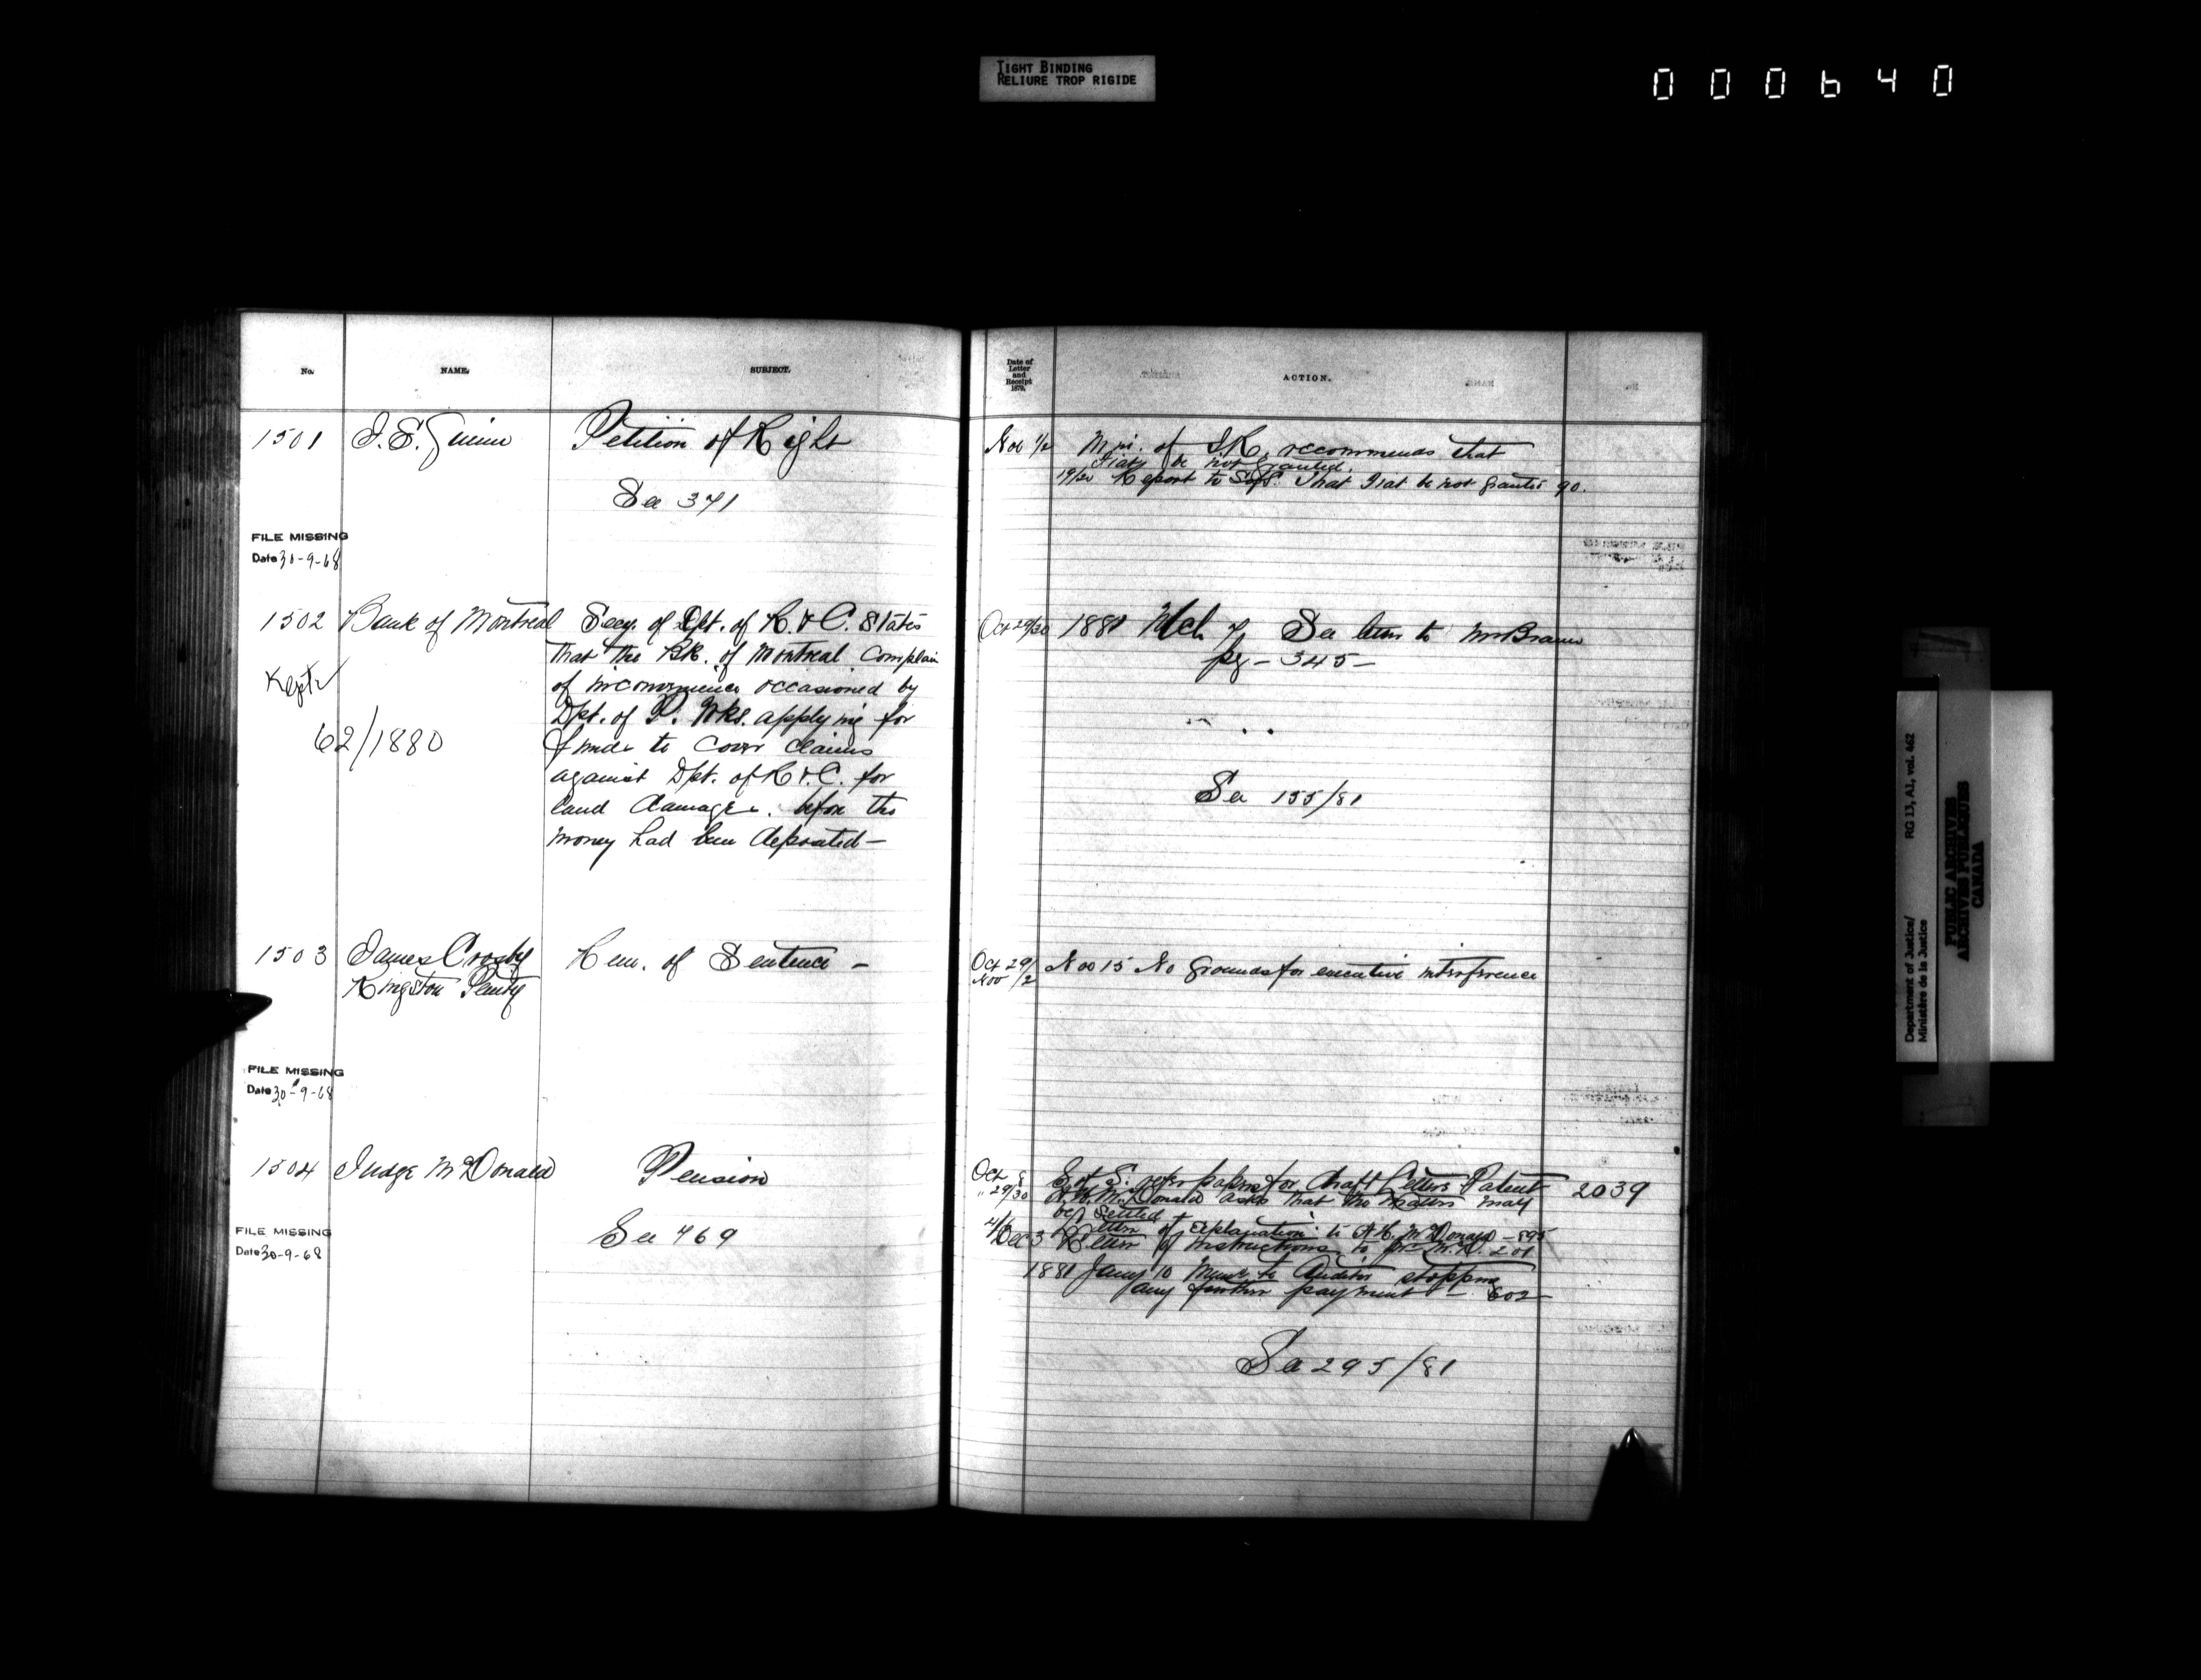 TIGHT BINDING
RELIURE TROP RIGIDE
000640
No.
NAME.
SUBJECT.
1501 J. E. Petition of Right
See 371
FILE MISSING
Date 30-9-68
1502 Bank of Montreal Secy. of Dpt. of R. & C. States
that the Bk. of Montreal complain
Kept
of inconvenience occasioned by
Dpt. of P. Wks. applying for
62/1880
funds to cover claims
against Dpt. of R. & C. for
land damages. before the
money had been deposited —
1503 James Crosby Rem. of Sentence —
Kingston Penty
FILE MISSING
Date 30-9-68
1504 Judge McDonald Pension
See 769
FILE MISSING
Date 30-9-68
Date of
Letter
and
Receipt
1879.
ACTION.
Nov 1/2 Min. of I.R. recommends that
Fiat be not granted.
19/20 Report to S of S. that Fiat be not granted 90.
Oct 29/30 1880 Mch 7 See letter to Mr Braun
pg — 345 —
See 155/81
Oct 29/ Nov 15 No grounds for executive interference
Nov /2
Oct 8 S. of S. refer papers for draft Letters Patent 2039
" 29/30 A. H. McDonald asks that the matter may
be settled
Letter of explanation to A. H. McDonald — 895
Dec 3 Letter of instructions to Mr McD. 201
1880 Jany 10 Memo to Auditor stopping
any further payment — 602 —
See 295/81
Department of Justice/
Ministère de la Justice
RG 13, A1, vol. 462
PUBLIC ARCHIVES
ARCHIVES PUBLIQUES
CANADA